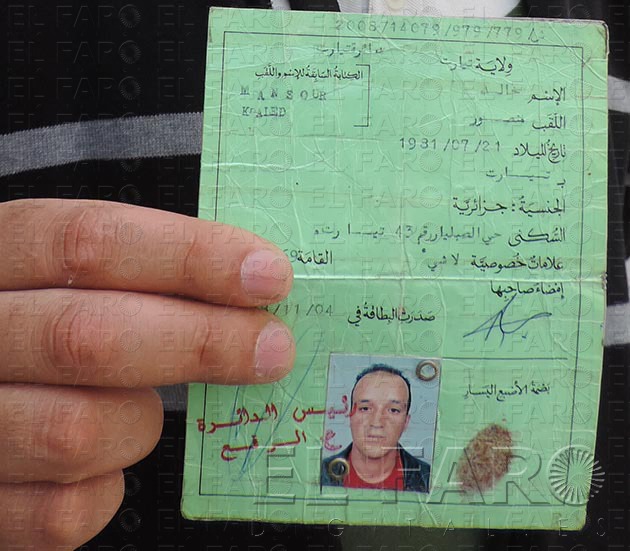 2008/14079/979/779
ولاية تيارت
دائرة تيارت
الكتابة السابقة للإسم واللقب
MANSOUR
KHALED
الإسم خالد
اللقب منصور
تاريخ الميلاد 1981/07/21
بـ تيارت
الجنسية : جزائرية
السكنى حي الصبليار رقم 43 تيارت
علامات خصوصية لا شي
القامة
إمضاء صاحبها
صدرت البطاقة في /11/04
بصمة الأصبع اليسار
رئيس الدائرة
EL FARO
DIGITAL.ES